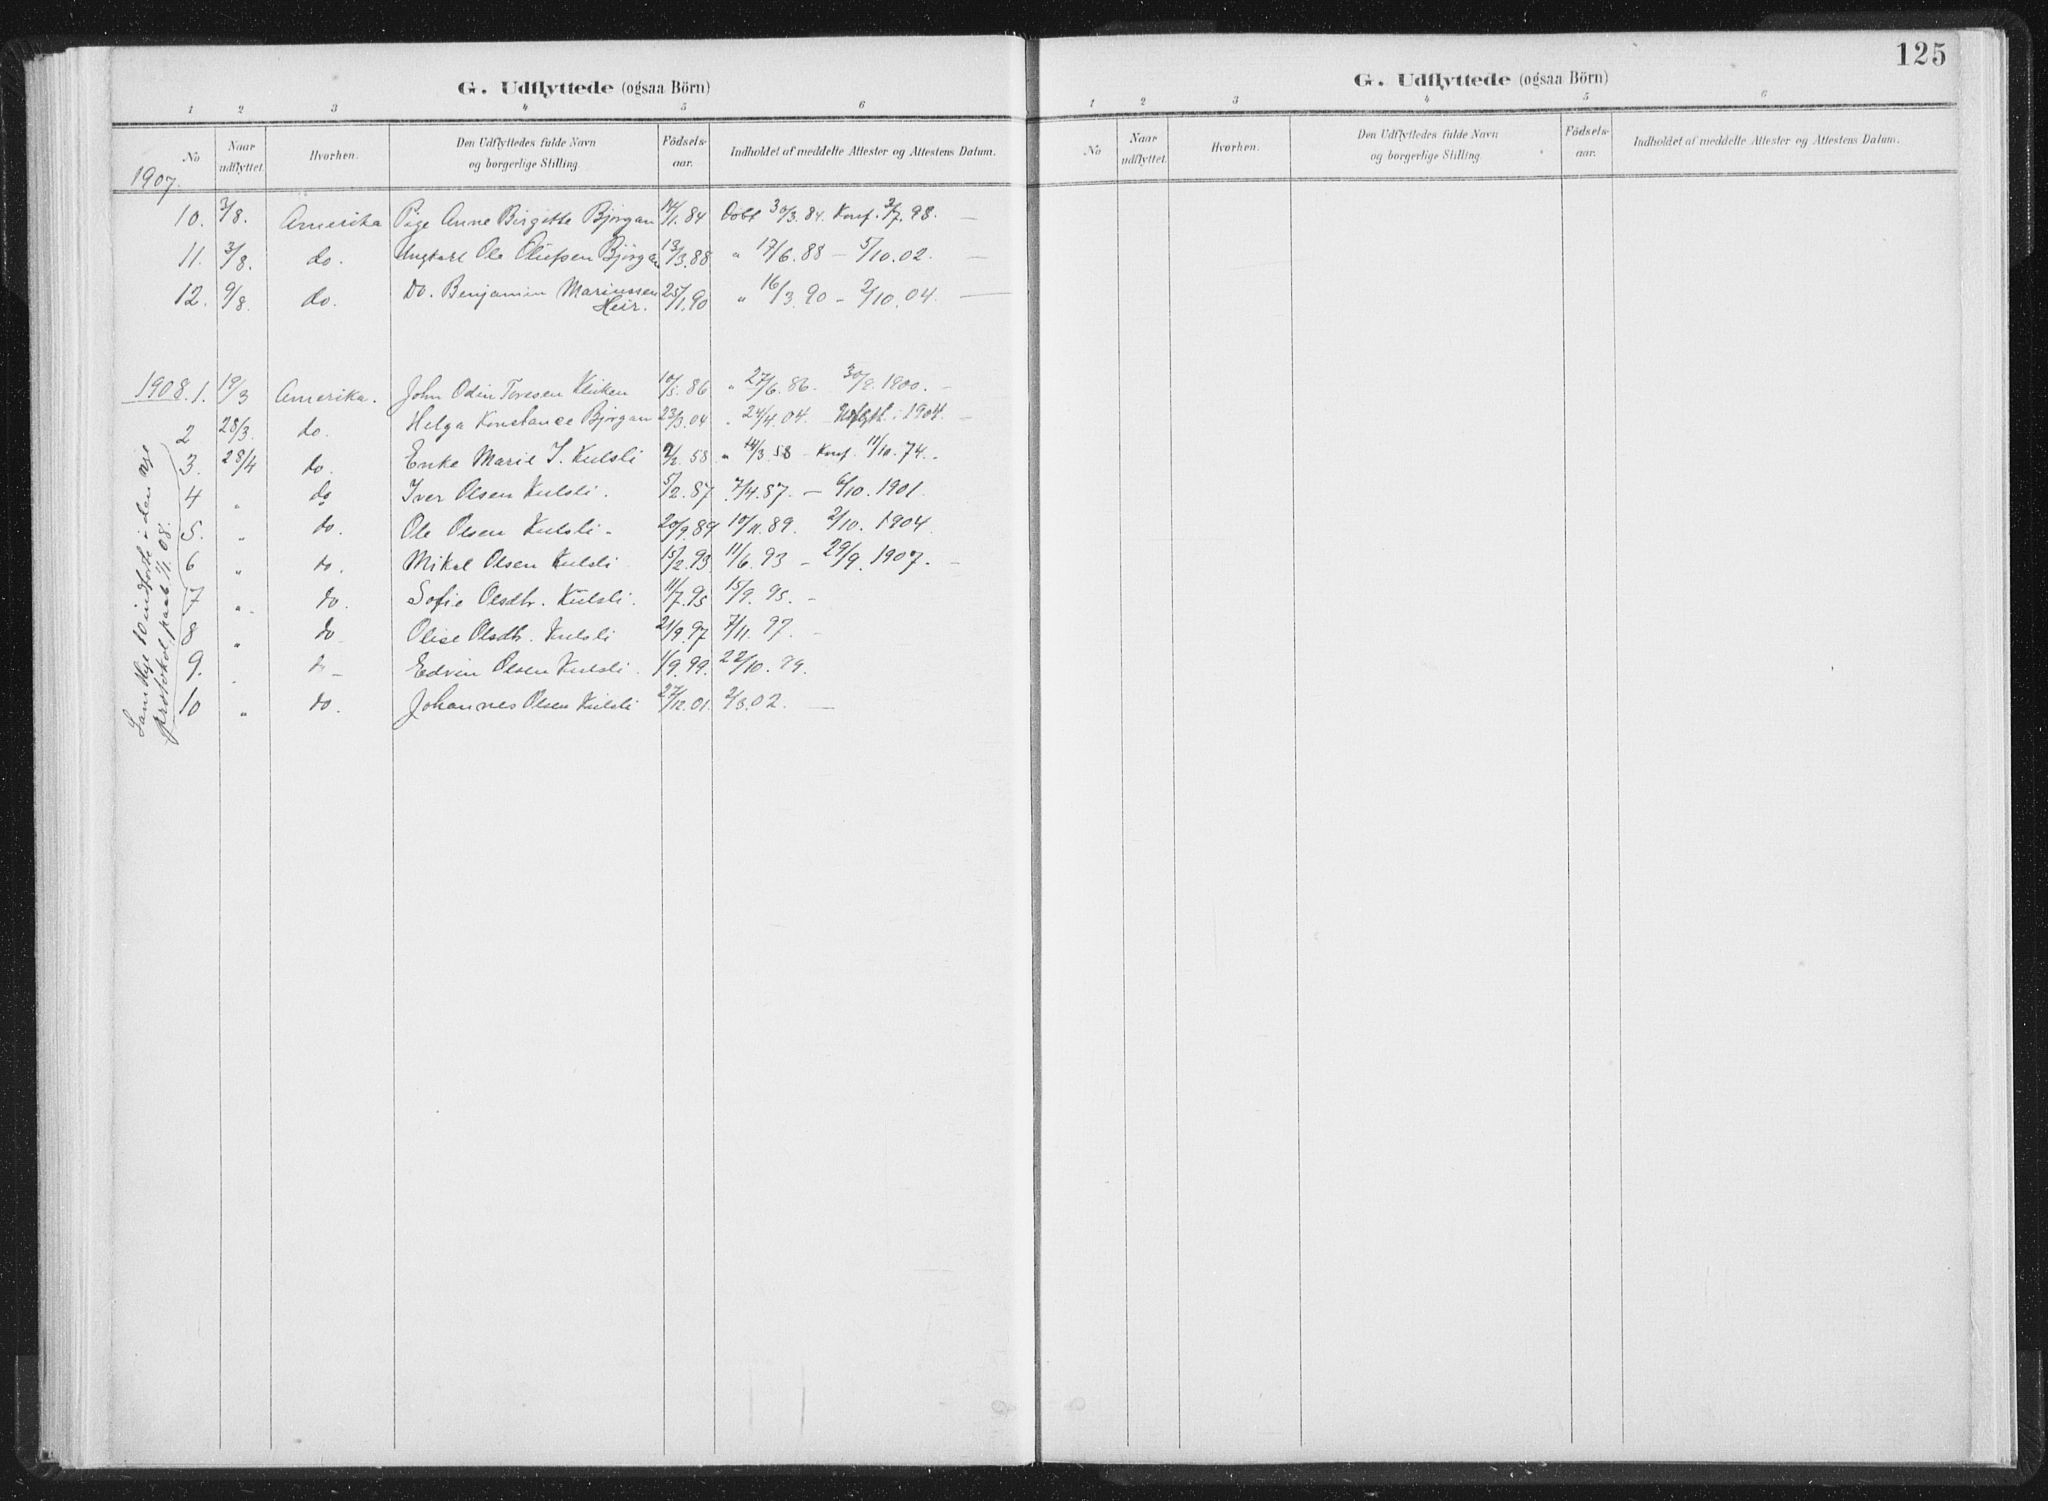 G. Udflyttede (ogsaa Börn)
1 2 3 4 5 6
No Naar udflyttet. Hvorhen. Den Udflyttedes fulde Navn og borgerlige Stilling. Födsels-aar. Indholdet af meddelte Attester og Attestens Datum.
1907.
10. 3/8. Amerika Pige Anne Birgitte Bjørgan 14/1.84 Døbt 30/3.84. Konf. 3/7.98. —
11. 3/8. do. Ungkarl Ole Olufsen Bjørgan 13/3.88 " 17/6.88 — 5/10.02. —
12. 9/8. do. Do. Benjamin Mariussen 25/1.90 " 16/3.90 — 2/10.04. —
Heir.
1908. 1. 19/3 Amerika. John Odin Toresen Kliken 10/5.86 " 27/6.86. 30/9.1900. —
2 28/3. do. Helga Konstance Bjørgan 23/3.04 " 24/4.04. i 1904. —
3. 28/4 do. Enke Marie I. Kulsli 9/2.58 " 14/3.58 — Konf. 11/10.74. "
4 " do Iver Olsen Kulsli. 5/2.87 7/4.87. — 6/10.1901.
5. " do. Ole Olsen Kulsli. 20/9.89 10/11.89. 2/10.1904.
6 " do. Mikal Olsen Kulsli 15/2.93. 11/6.93 — 29/9.1907. —
7 " do. Sofie Olsdtr. Kulsli. 11/7.95 15/9.95. —
8 " do Olise Olsdtr. Kulsli 21/9.97 7/11.97. —
9. " do — Edvin Olsen Kulsli. 1/9.99. 22/10.99.
10 " do. Johannes Olsen Kulsli 27/12.01. 2/3.02. —
Samtlige 10 indførte i den nye
protokol, paab. 1/1.08.
125
G. Udflyttede (ogsaa Börn)
1 2 3 4 5 6
No Naar udflyttet. Hvorhen. Den Udflyttedes fulde Navn og borgerlige Stilling. Födsels-aar. Indholdet af meddelte Attester og Attestens Datum.